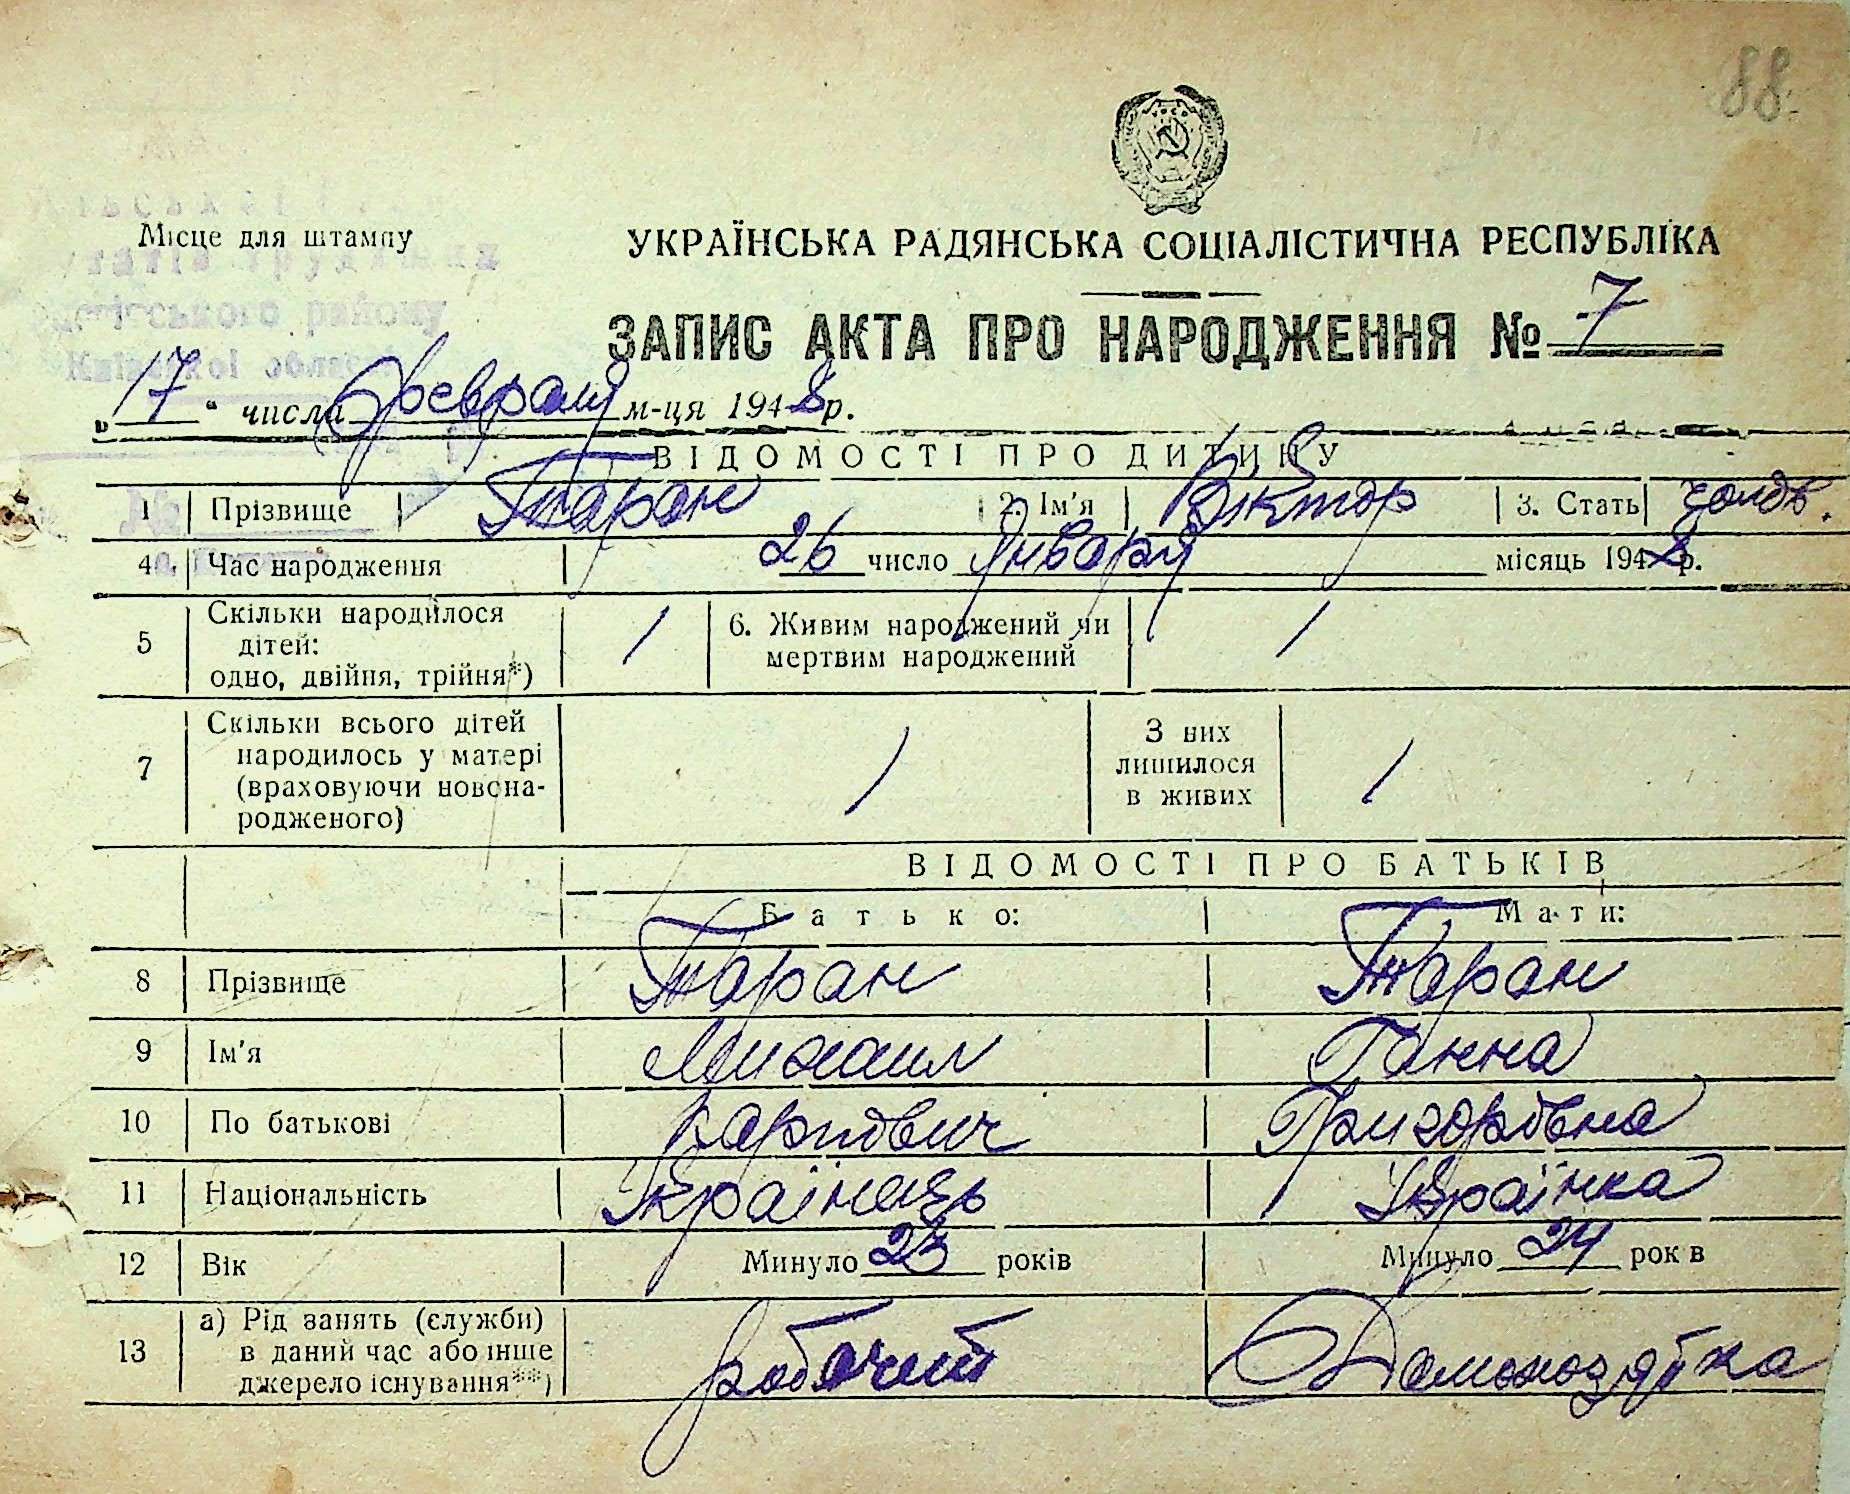 88.
Місце для штампу
УКРАЇНСЬКА РАДЯНСЬКА СОЦІАЛІСТИЧНА РЕСПУБЛІКА
району
ЗАПИС АКТА ПРО НАРОДЖЕННЯ № 7
„17“ числа февраля м-ця 1948 р.
ВІДОМОСТІ ПРО ДИТИНУ
1 Прізвище Таран 2. Ім'я Віктор 3. Стать
4 Час народження 26 число января місяць 1948 р.
5 Скільки народилося дітей: одно, двійня, трійня*) 1 6. Живим народжений чи мертвим народжений 1
7 Скільки всього дітей народилось у матері (враховуючи новонародженого) 1 З них лишилося в живих 1
ВІДОМОСТІ ПРО БАТЬКІВ
Батько: Мати:
8 Прізвище Таран Таран
9 Ім'я Михаил Ганна
10 По батькові Карпович Григорівна
11 Національність Українець Українка
12 Вік Минуло 23 років Минуло 24 рок в
13 а) Рід занять (служби) в даний час або інше джерело існування**) робочий Домохозяйка